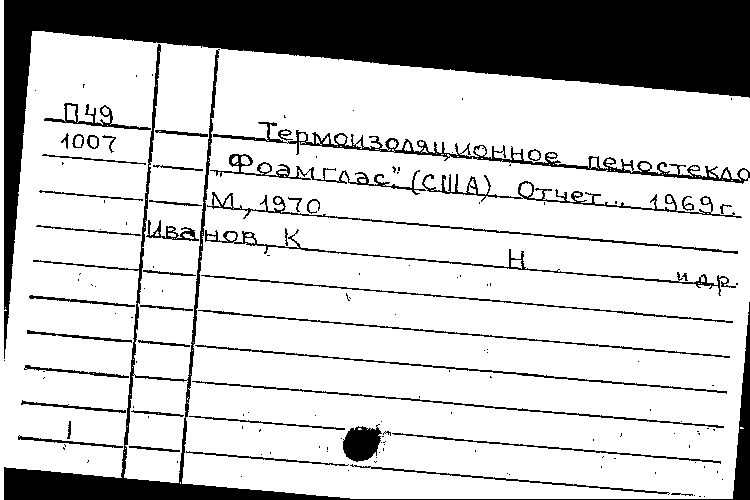 П49
1007
Термоизоляционное пеностекло
„Фоамглас" (США). Отчет... 1969 г.
М., 1970.
Иванов, К Н и др.
1